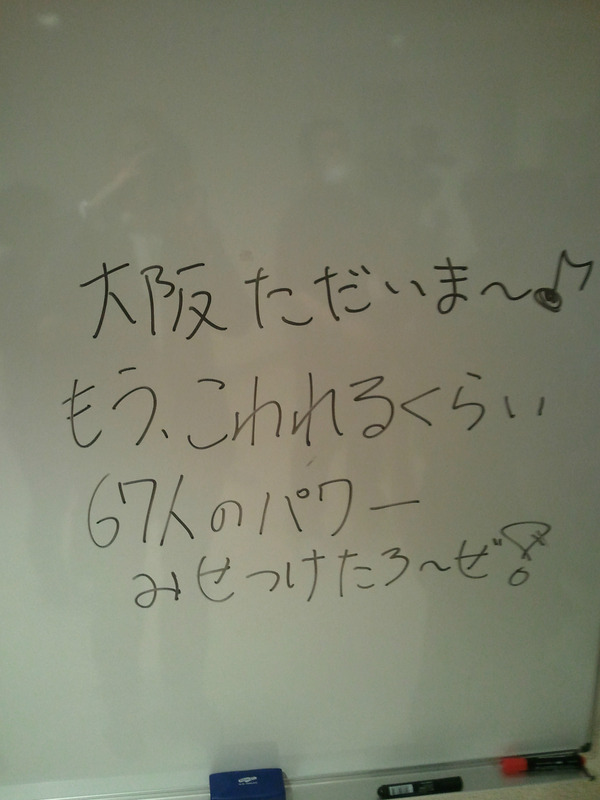 大阪ただいま〜♪
もう、こわれるくらい
67人のパワー
みせつけたろ〜ぜ!